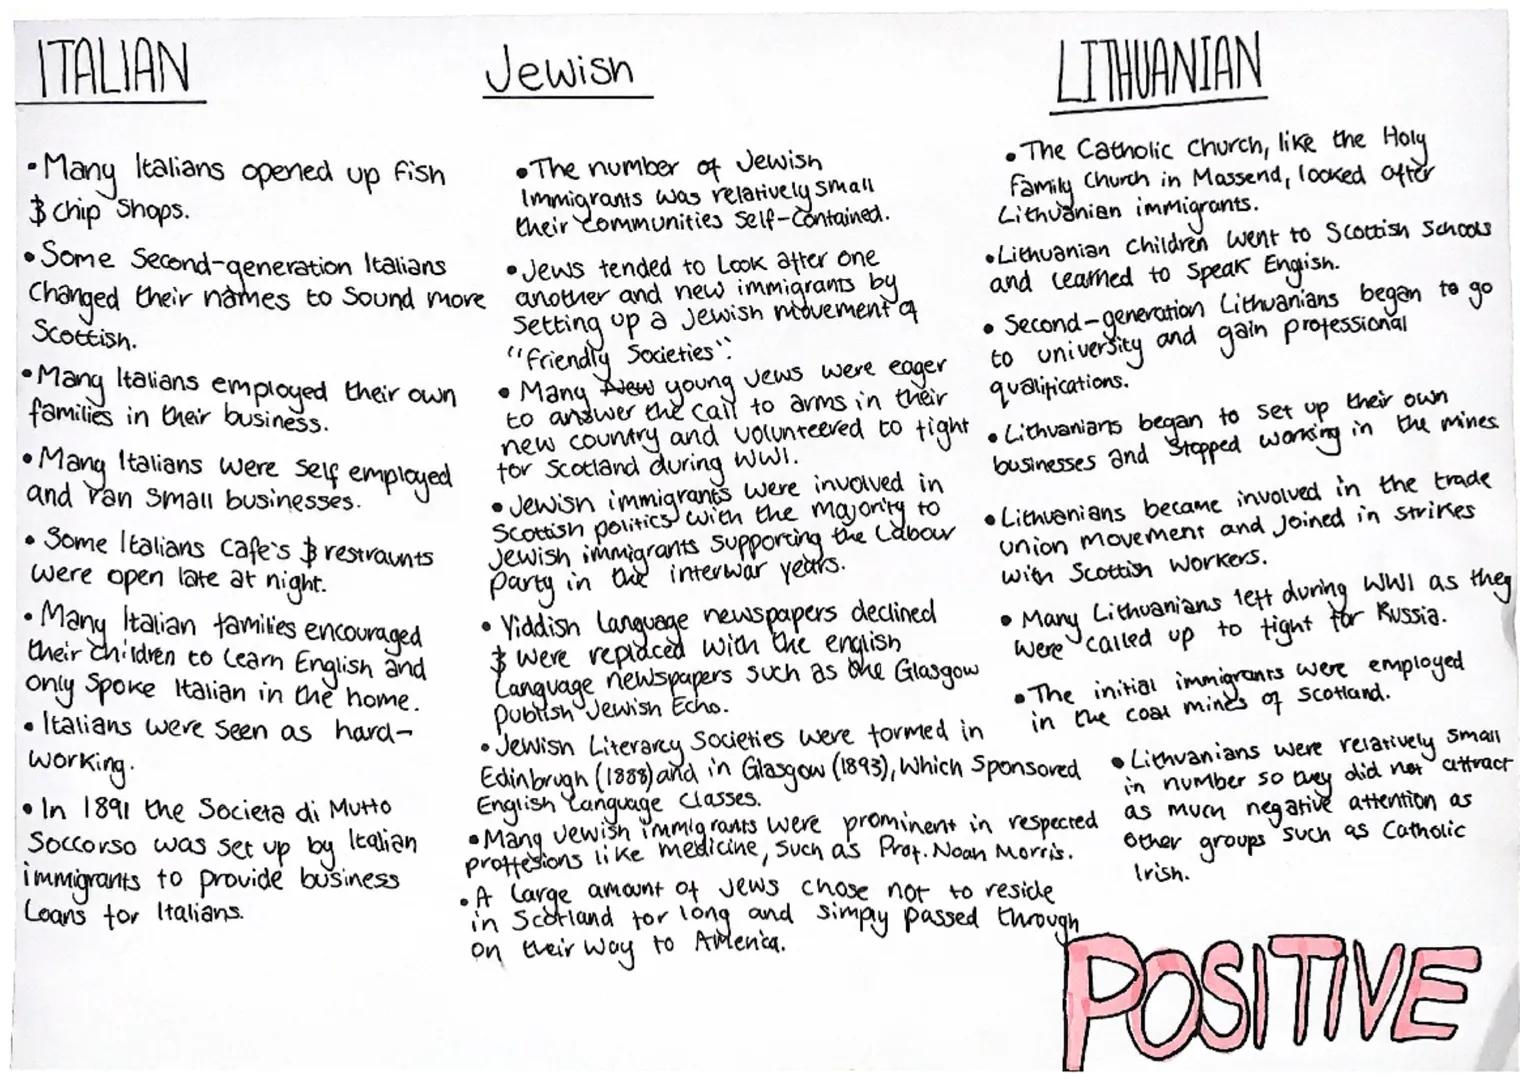 ITALIAN
• Many Italians opened up fish
& chip shops.
• Some Second-generation Italians
Changed their names to Sound more
Scottish.
• Many Italians employed their own
families in their business.
• Many Italians were self employed
and ran small businesses.
• Some Italians Cafe's & restraunts
were open late at night.
• Many Italian families encouraged
their children to learn English and
only spoke Italian in the home.
• Italians were seen as hard-
working.
• In 1891 the Societa di Mutto
Soccorso was set up by Italian
immigrants to provide business
Loans for Italians.
Jewish
• The number of Jewish
Immigrants was relatively small
their communities Self-Contained.
• Jews tended to look after one
another and new immigrants by
Setting up a Jewish movement of
"friendly Societies".
• Many New young Jews were eager
to answer the call to arms in their
new country and volunteered to fight
for Scotland during WWI.
• Jewish immigrants were involved in
Scottish politics with the majority to
Jewish immigrants supporting the Labour
Party in the interwar years.
• Yiddish Language newspapers declined
& were replaced with the english
Language newspapers such as the Glasgow
publish Jewish Echo.
• Jewish Literarcy Societies were formed in
Edinbrugh (1888) and in Glasgow (1893), which Sponsored
English Language Classes.
• Many Jewish immigrants were prominent in respected
proffesions like medicine, such as Prof. Noah Morris.
• A large amount of Jews chose not to reside
in Scotland for long and simply passed through
on their way to America.
LITHUANIAN
• The Catholic Church, like the Holy
Family Church in Mossend, looked after
Lithuanian immigrants.
• Lithuanian Children went to Scottish Schools
and learned to Speak Engish.
• Second-generation Lithuanians began to go
to university and gain professional
qualifications.
• Lithuanians began to set up their own
businesses and stopped working in the mines.
• Lithuanians became involved in the trade
union movement and joined in strikes
with Scottish workers.
• Many Lithuanians left during WWI as they
were called up to fight for Russia.
• The initial immigrants were employed
in the coal mines of Scotland.
• Lithuanians were relatively small
in number so they did not attract
as much negative attention as
other groups such as Catholic
Irish.
POSITIVE